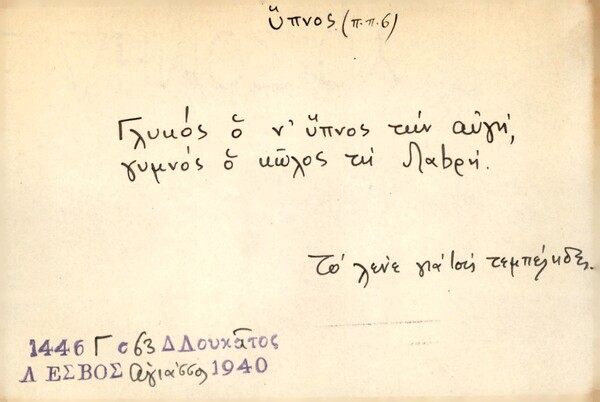 ὕπνος (π.π.6)
Γλυκός ὁ ν' ὕπνος τήν αὐγή,
γυμνός ὁ κῶλος τή Λαbρή.
Τό λένε γιά τσή τεμπέληδες.
1446 Γ c 63 Δ Λουκᾶτος
ΛΕΣΒΟΣ Ἁγιάσσος 1940